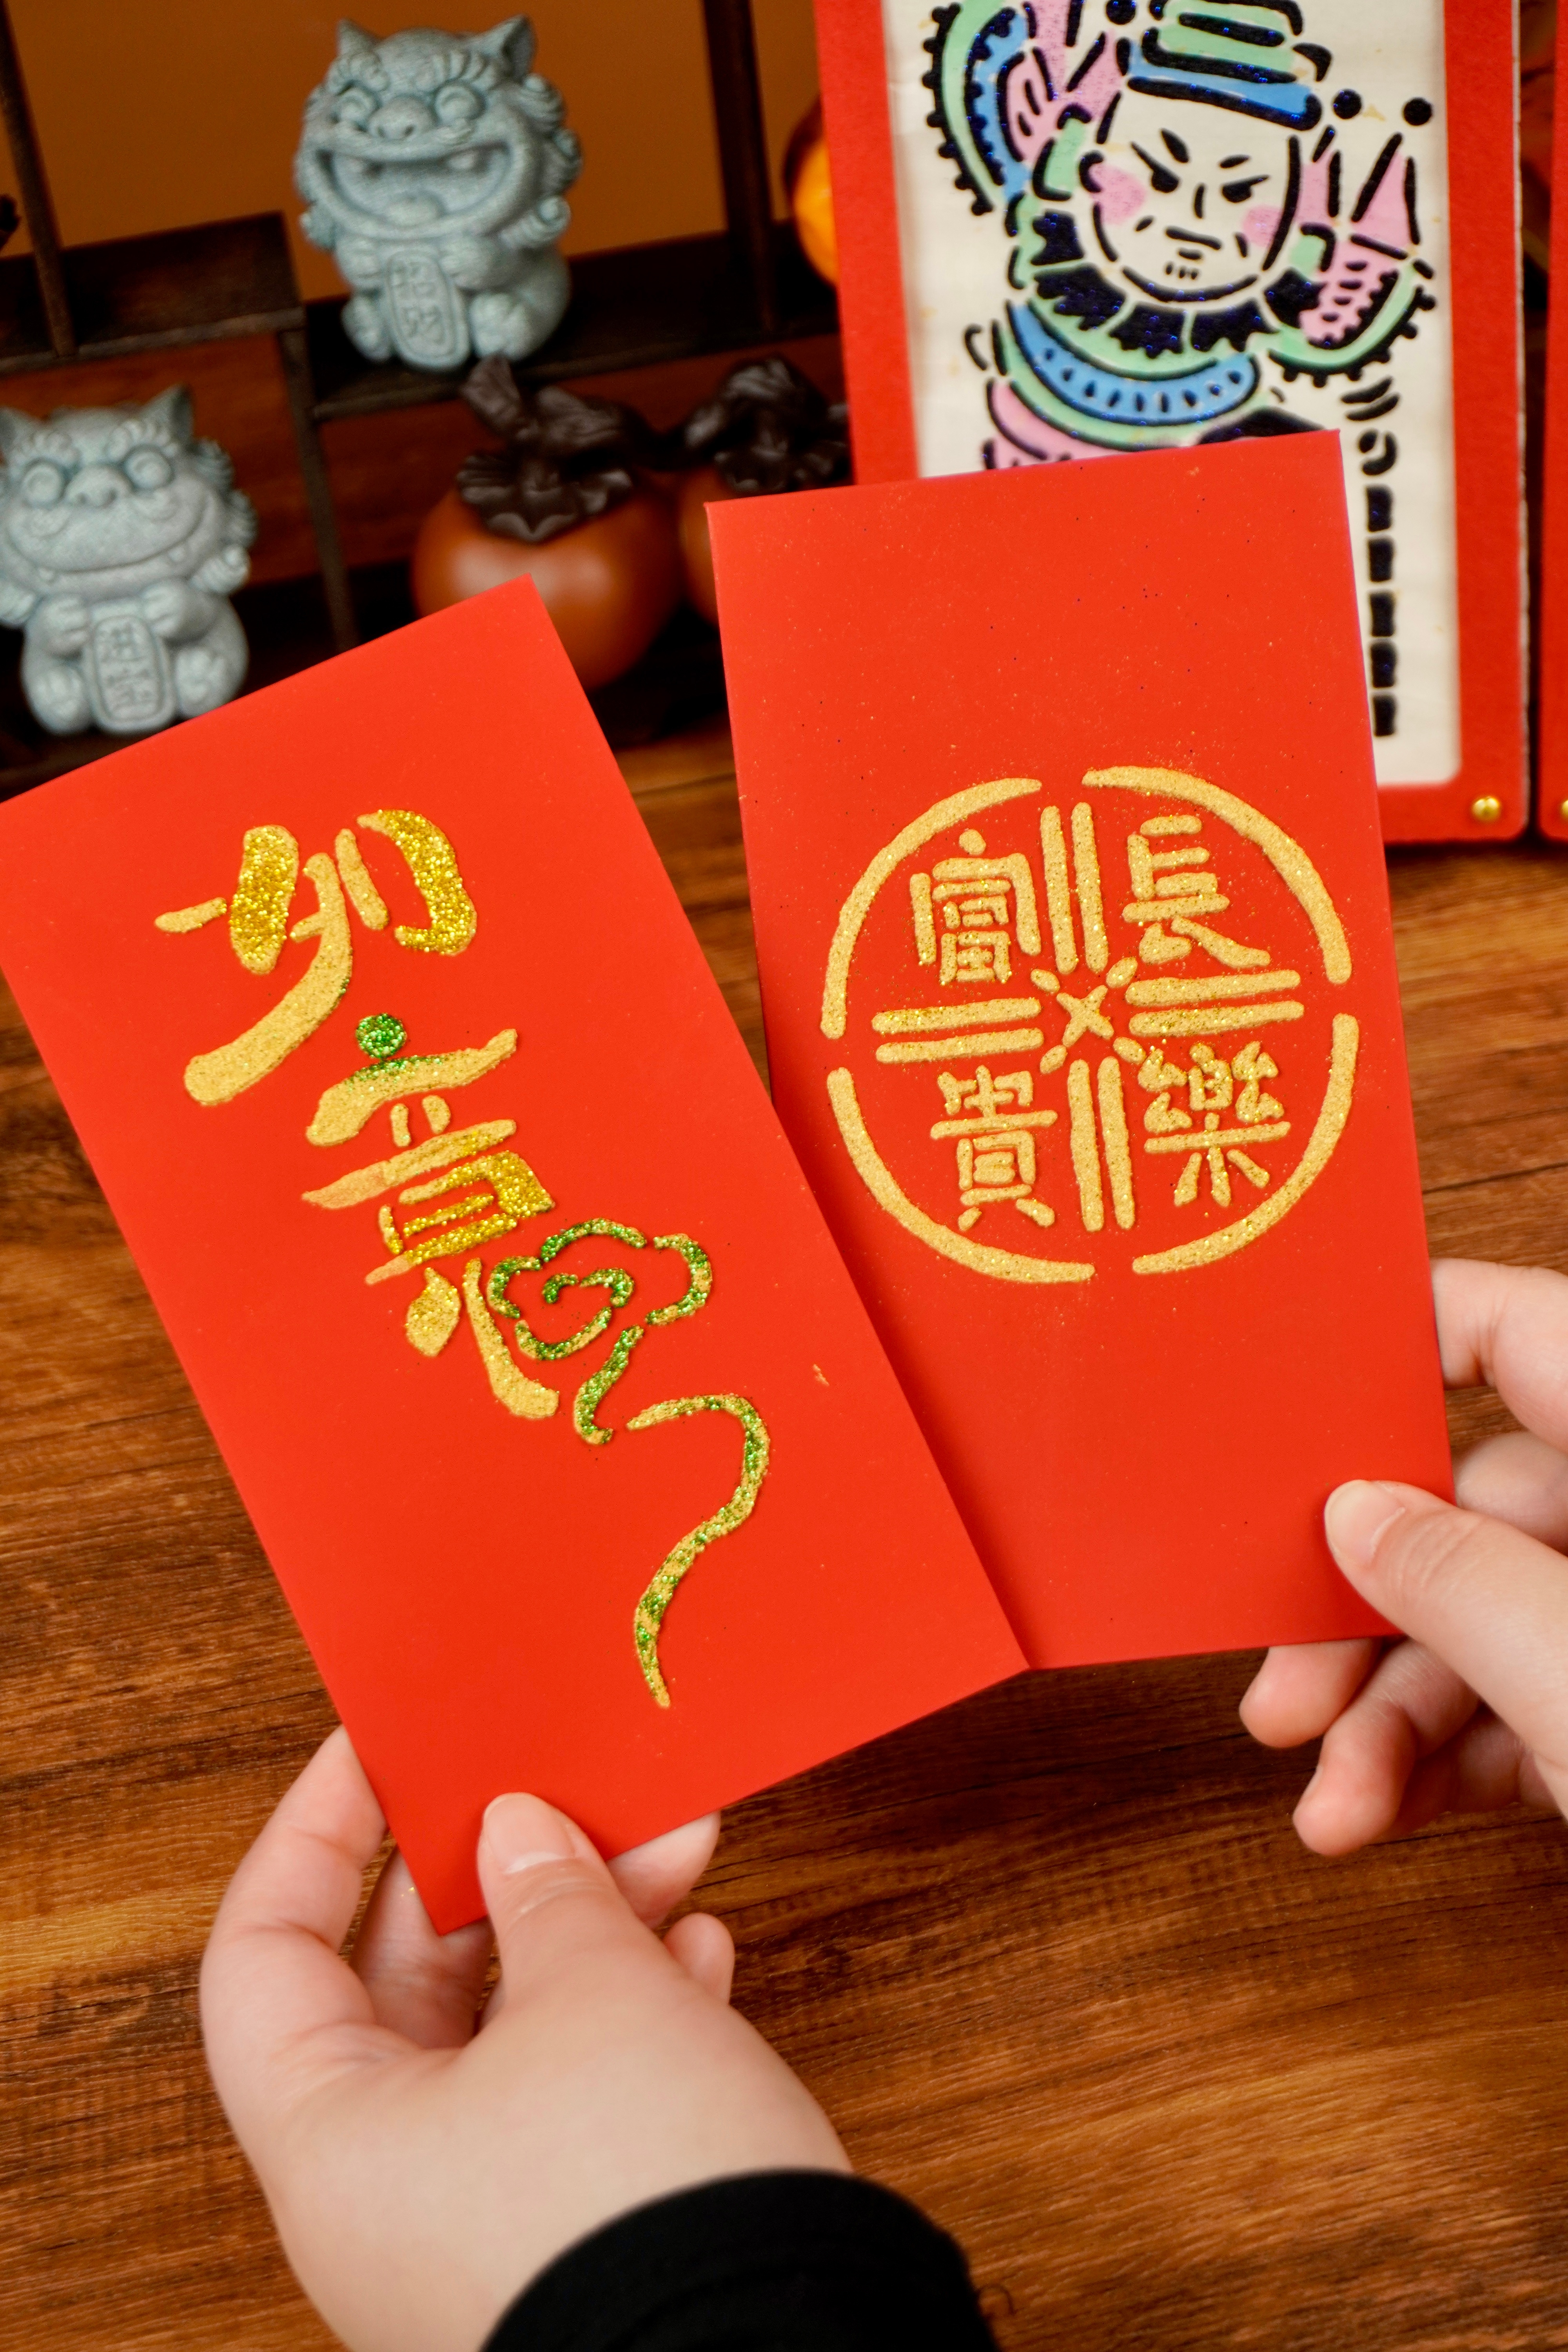 招财
进宝
如意
長樂
富貴